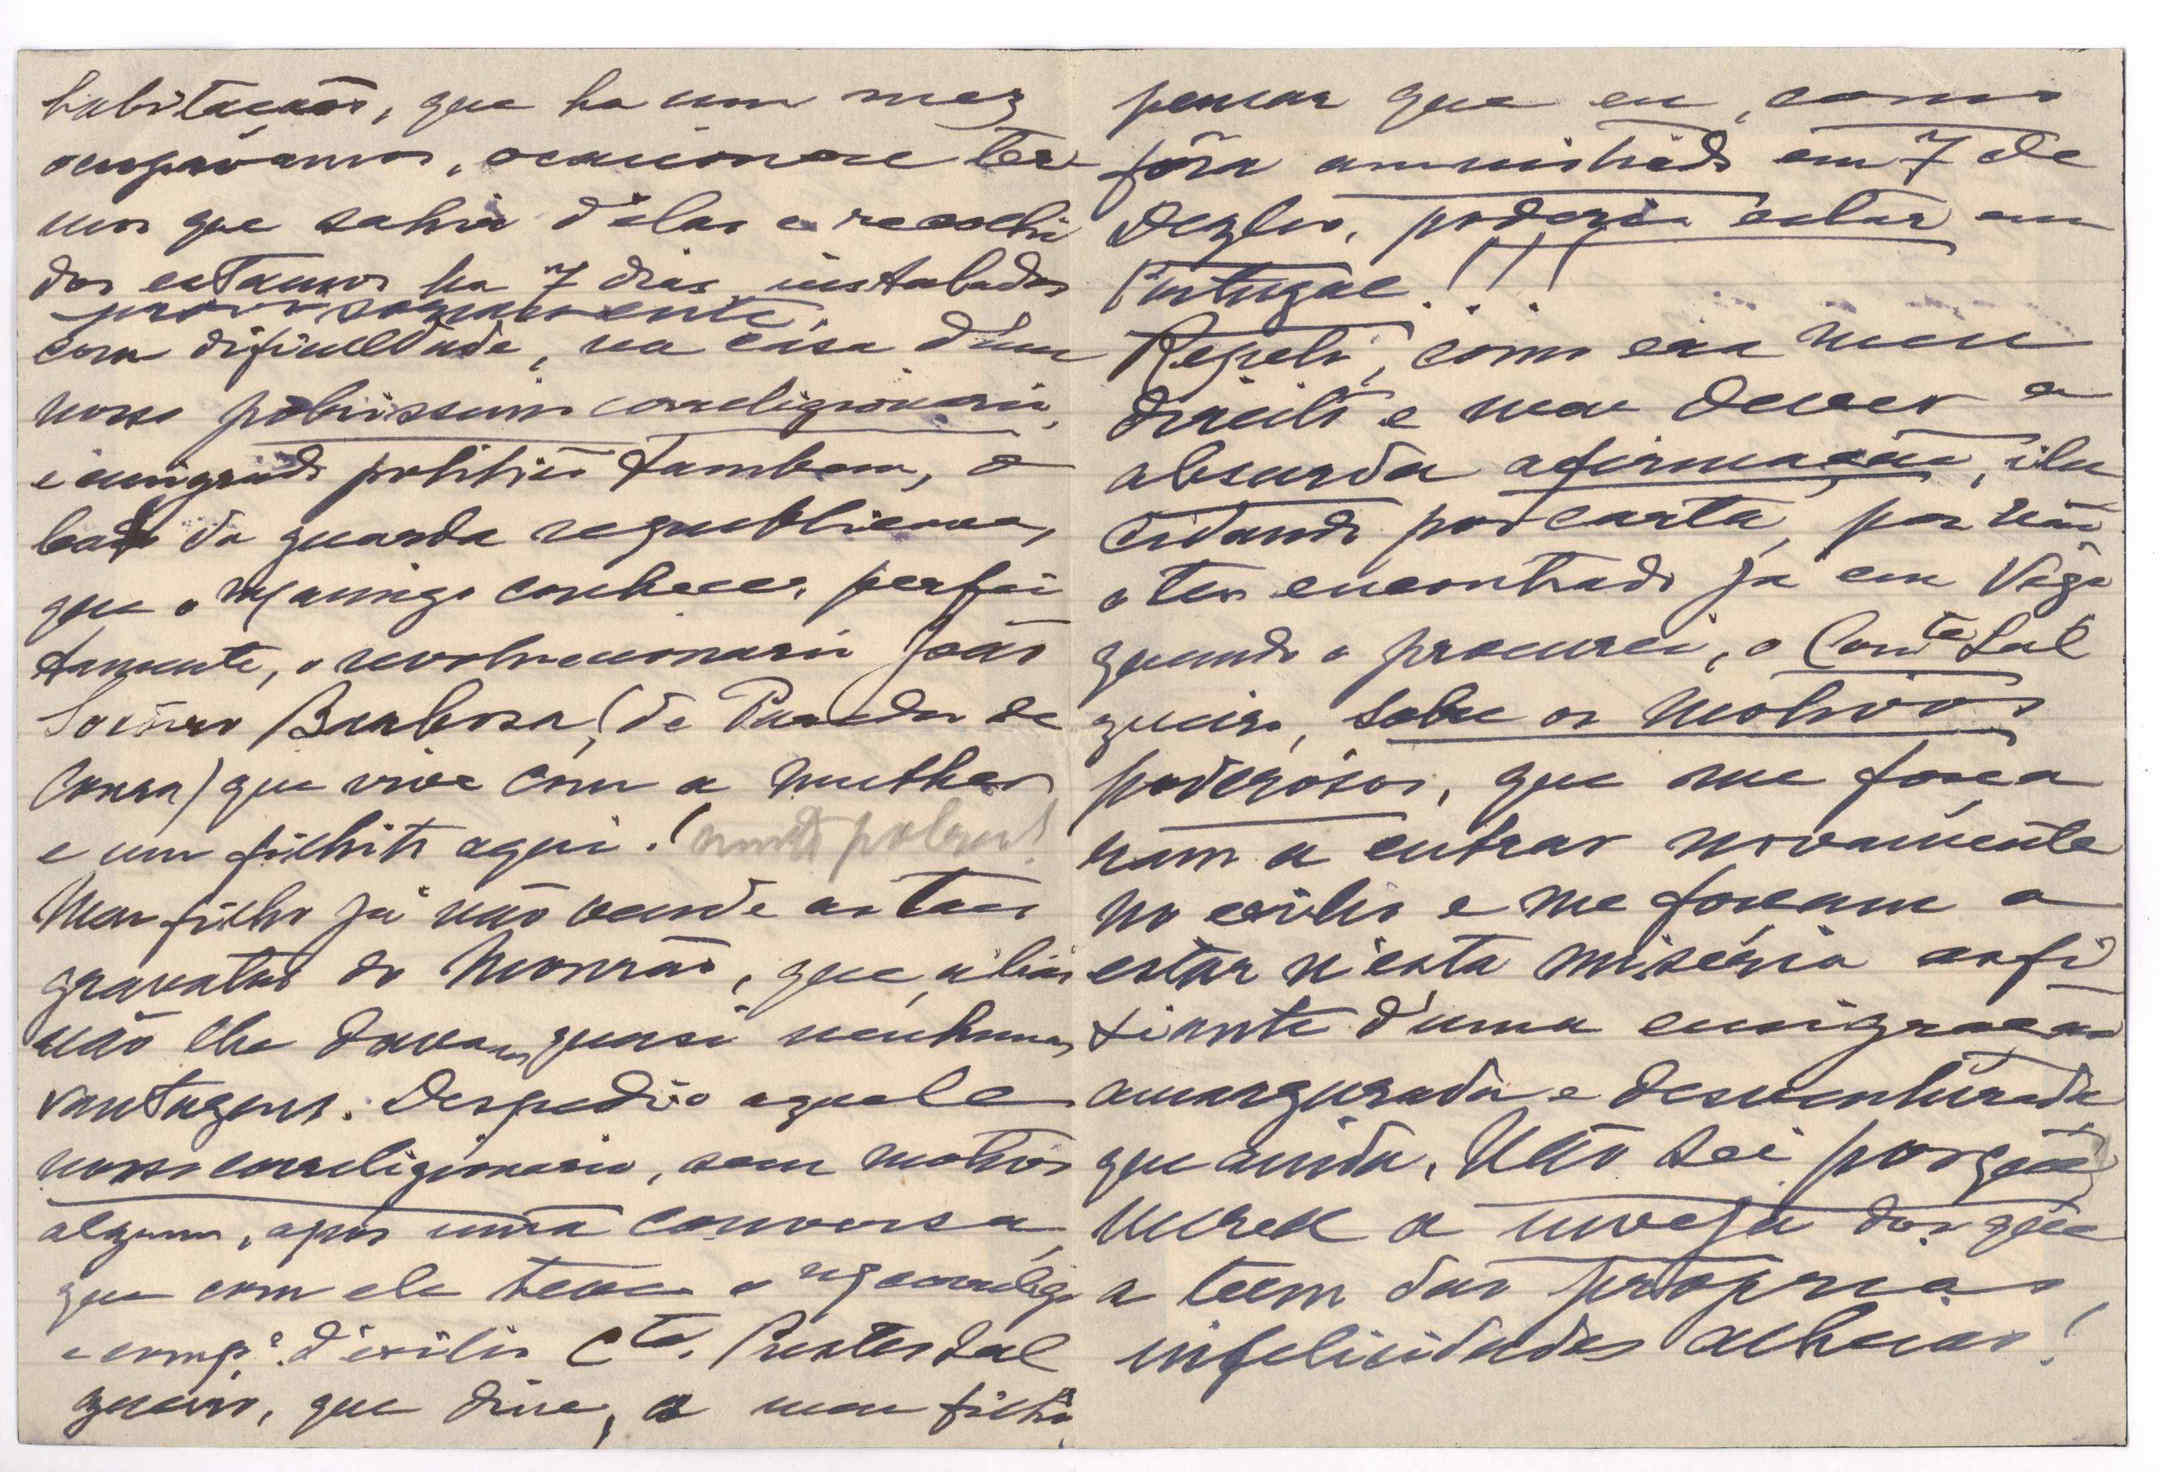 habitação, que ha um mez
ocupávamos, ocasionou ter
mos que sahir d'elas e recolhi
dos estamos ha 7 dias instalados
provisoriamente,
com dificuldade, na casa d'um
nosso pobrissimo correligionario,
emigrado politico tambem, o
da guarda republicana,
que o amigo conhece, perfei
tamente, o revolucionario João
Barbosa, (de Paredes de
Coura) que vive com a mulher
e um filhito aqui. (muito pobre!
Meu filho já não vende as taes
gravatas do Monção, que, alias
não lhe davam quasi nenhumas
vantagens. Despediu o aquele
nosso correligionario, sem motivo
algum, apos uma conversa,
que com ele teve o correlig.
e comp.º d'exilio C.te Prestes Sal
gueiro, que disse, a meu filho,
pensar que eu, como
fôra amnistiado em 7 de
Dezbro, poderia estar em
Portugal!!!...
Repeli, como era meu
direito e meu dever a
absurda afirmação, elu
cidando por carta, por não
o ter encontrado já em Vigo
quando o procurei, o Com.te Sal
gueiro, sobre os motivos
poderosos, que me força
ram a entrar novamente
no exilio e me forcam a
estar n'esta miséria asfi
xiante d'uma emigração
amargurada e desventurada
que ainda, Não sei porque
merece a inveja dos que
a teem das proprias
infelicidades alheias!